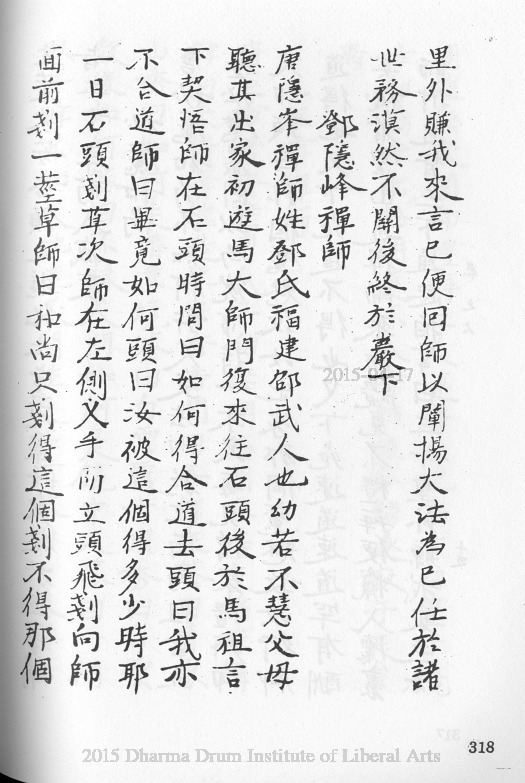 里外賺我來言已便回師以闡揚大法為已任於諸
世務漠然不關後終於巖下
鄧隱峰禪師
唐隱峯禪師姓鄧氏福建邵武人也幼若不慧父母
聽其出家初遊馬大師門復來往石頭後於馬祖言
下契悟師在石頭時問曰如何得合道去頭曰我亦
不合道師曰畢竟如何頭曰汝被這個得多少時耶
一日石頭剗草次師在左側叉手而立頭飛剗向師
面前剗一莖草師曰和尚只剗得這個剗不得那個
318
2015 Dharma Drum Institute of Liberal Arts